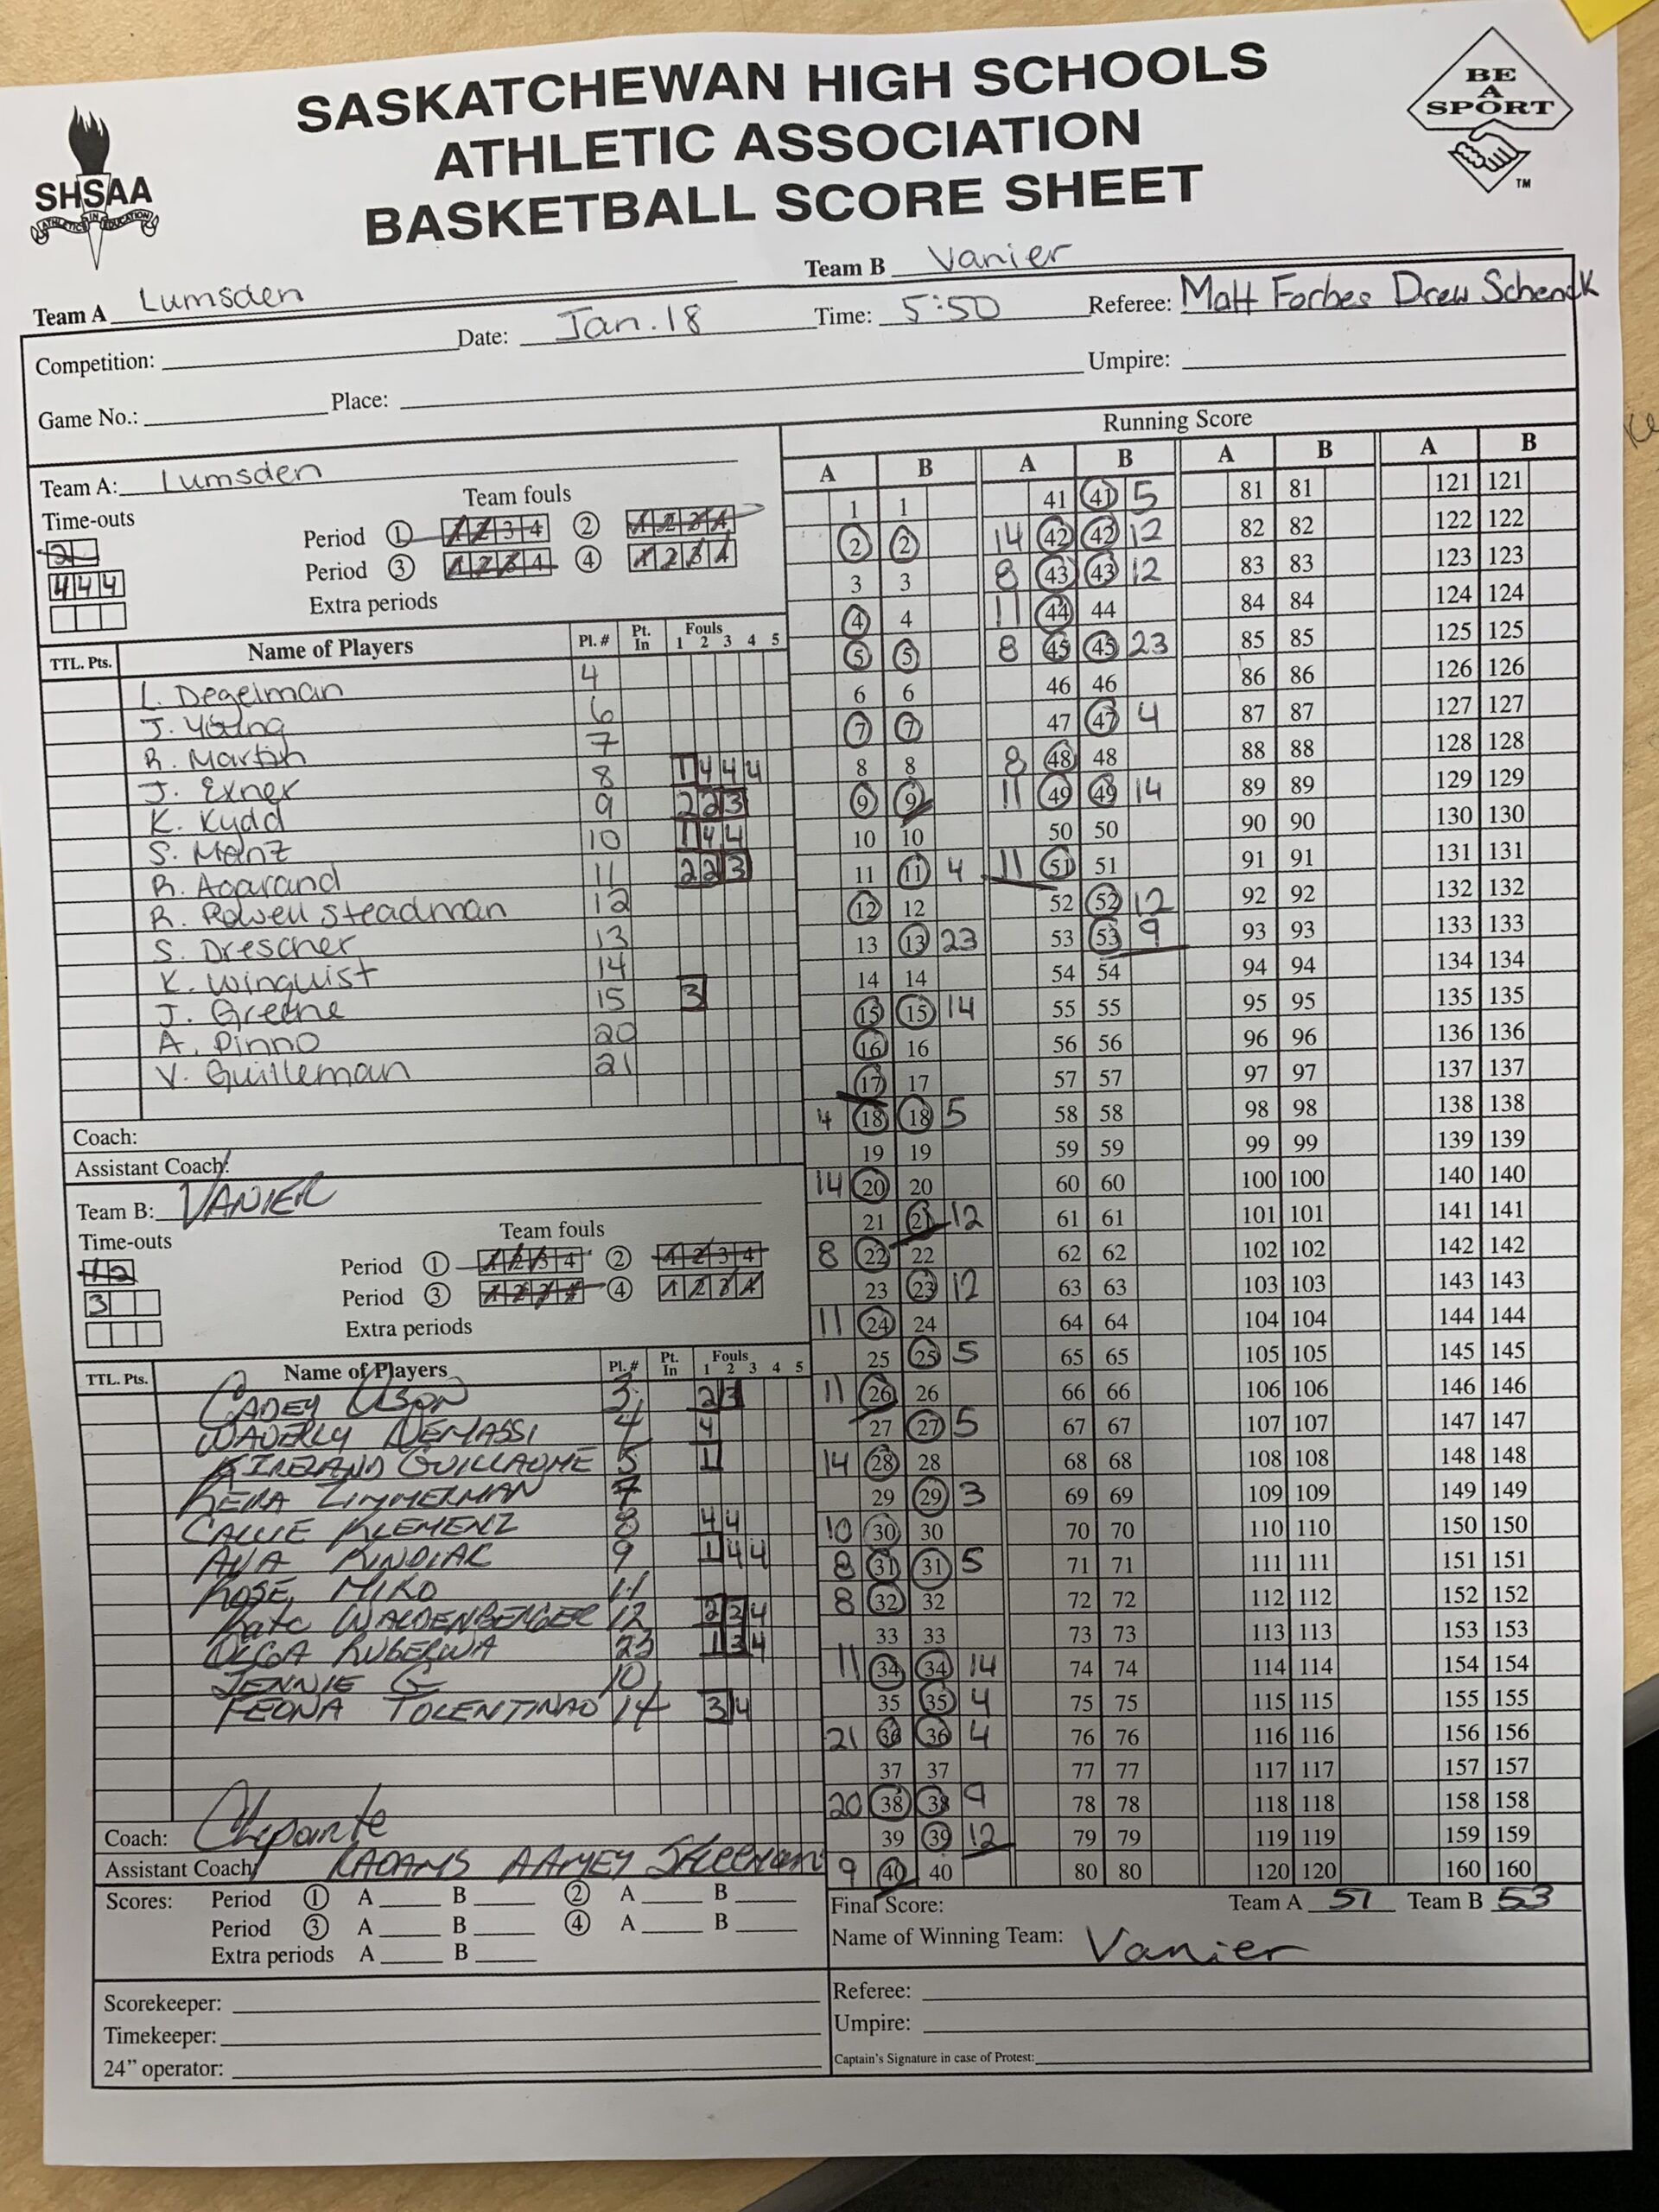 SASKATCHEWAN HIGH SCHOOLS
ATHLETIC ASSOCIATION
BASKETBALL SCORE SHEET
SHSAA
ATHLETICS IN EDUCATION
BE
A
SPORT
TM
Team A Lumsden Team B Vanier
Competition: Date: Jan. 18 Time: 5:50 Referee: Matt Forbes Drew Schenck
Game No.: Place: Umpire:
Team A: Lumsden
Time-outs Team fouls
2 Period 1 1 2 3 4 2 1 2 3 4
4 4 4 Period 3 1 2 3 4 4 1 2 3 4
Extra periods
TTL. Pts. Name of Players Pl. # Pt. In Fouls 1 2 3 4 5
L. Degelman 4
J. Young 6
R. Martin 7
J. Exner 8 1 4 4 4
K. Kydd 9 2 2 3
S. Manz 10 1 4 4
R. Agarand 11 2 2 3
R. Rowell Steadman 12
S. Drescher 13
K. Winquist 14
J. Greene 15 3
A. Pinno 20
V. Guilleman 21
Coach:
Assistant Coach:
Team B: VANIER
Time-outs Team fouls
1 2 Period 1 1 2 3 4 2 1 2 3 4
3 Period 3 1 2 3 4 4 1 2 3 4
Extra periods
TTL. Pts. Name of Players Pl. # Pt. In Fouls 1 2 3 4 5
CADEY 3 2 3
WAVERLY 4 4
KIRELAND GUILLAUME 5 1
KEIRA ZIMMERMAN 7
CALLIE KLEMENZ 8 4 4
AVA KINDIAK 9 1 4 4
ROSE MIKO 11
Kate WALDENBERGER 12 2 3 4
OLGA RUBERWA 23 1 3 4
JENNIE G 10
FEONA TOLENTINAO 14 3 4
Coach:
Assistant Coach: KADAMS
Scores: Period 1 A B 2 A B
Period 3 A B 4 A B
Extra periods A B
Scorekeeper:
Timekeeper:
24" operator:
Running Score
A B A B A B A B
1 1 41 41 5 81 81 121 121
2 2 14 42 42 12 82 82 122 122
3 3 8 43 43 12 83 83 123 123
4 4 11 44 44 84 84 124 124
5 5 8 45 45 23 85 85 125 125
6 6 46 46 86 86 126 126
7 7 47 47 4 87 87 127 127
8 8 8 48 48 88 88 128 128
9 9 11 49 49 14 89 89 129 129
10 10 50 50 90 90 130 130
11 11 4 11 51 51 91 91 131 131
12 12 52 52 12 92 92 132 132
13 13 23 53 53 9 93 93 133 133
14 14 54 54 94 94 134 134
15 15 14 55 55 95 95 135 135
16 16 56 56 96 96 136 136
17 17 57 57 97 97 137 137
4 18 18 5 58 58 98 98 138 138
19 19 59 59 99 99 139 139
14 20 20 60 60 100 100 140 140
21 21 12 61 61 101 101 141 141
8 22 22 62 62 102 102 142 142
23 23 12 63 63 103 103 143 143
11 24 24 64 64 104 104 144 144
25 25 5 65 65 105 105 145 145
11 26 26 66 66 106 106 146 146
27 27 5 67 67 107 107 147 147
14 28 28 68 68 108 108 148 148
29 29 3 69 69 109 109 149 149
10 30 30 70 70 110 110 150 150
8 31 31 5 71 71 111 111 151 151
8 32 32 72 72 112 112 152 152
33 33 73 73 113 113 153 153
11 34 34 14 74 74 114 114 154 154
35 35 4 75 75 115 115 155 155
21 36 36 4 76 76 116 116 156 156
37 37 77 77 117 117 157 157
20 38 38 9 78 78 118 118 158 158
39 39 12 79 79 119 119 159 159
9 40 40 80 80 120 120 160 160
Final Score: Team A 51 Team B 53
Name of Winning Team: Vanier
Referee:
Umpire:
Captain's Signature in case of Protest: